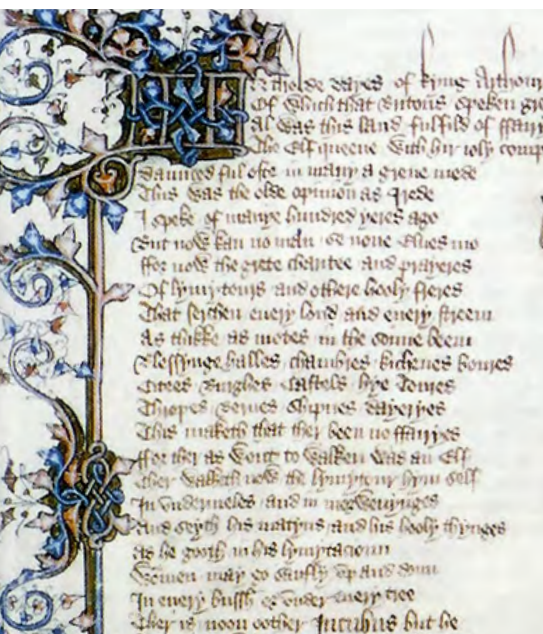 In tholde dayes of kyng Arthour
Of which that Britons speken gre
Al was this land fulfild of ffairy
The Elf queene with hir ioly comp
Daunced ful ofte in many a grene mede
This was the olde opinion as I rede
I speke of manye hundred yeres ago
But now kan no man se none Elues mo
ffor now the grete charitee and prayeres
Of lymytours and othere hooly freres
That serchen euery lond and euery streem
As thikke as motes in the sonne beem
Blessynge halles chambres kichenes boures
Citees Burghes Castels hye Toures
Thropes Bernes Shipnes Dayeryes
This maketh that ther been no ffairyes
ffor ther as wont to walken was an Elf
Ther walketh now the lymytour hym self
In vndermeles and in morwenynges
And seyth his matyns and his hooly thynges
As he gooth in his lymytacioun
Wommen may go saufly vp and doun
In euery bussh or vnder euery tree
Ther is noon oother Incubus but he